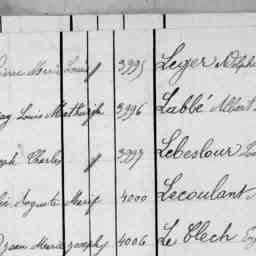 Pierre Marie Louis // 3995 Leger Adolphe
Louis Mathurin 3996 Labbé Albert
Joseph Charles // 3997 Lebeslour
Auguste Marie 4000 Lecoulant
Jean Marie Joseph 4006 Le Clech